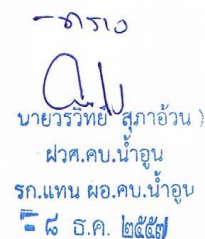 - ทราบ
นายวรวิทย์ สุภาอ้วน )
ฝวศ.คบ.น้ำอูน
รก.แทน ผอ.คบ.น้ำอูน
- ๘ ธ.ค. ๒๕๕๗